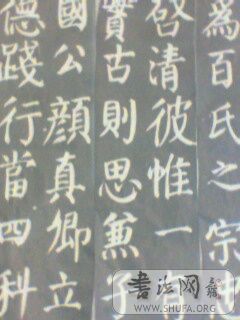 為百氏之宗忠
啓清彼惟一有
實古則思兼子
國公顏真卿立
德踐行當四科
書法网
WWW.SHUFA.ORG